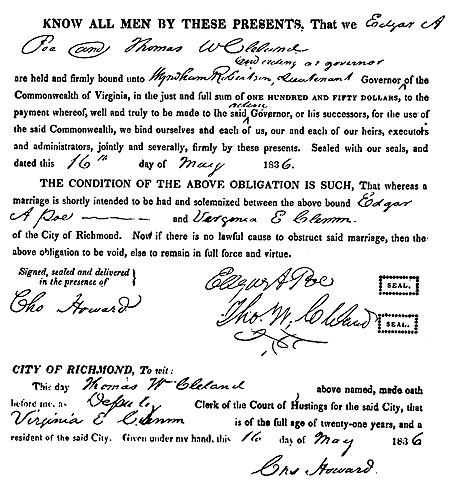 KNOW ALL MEN BY THESE PRESENTS, That we Edgar A
Poe and Thomas W Cleland
and acting as governor
are held and firmly bound unto Wyndham Robertson, Lieutenant Governor of the
Commonwealth of Virginia, in the just and full sum of ONE HUNDRED AND FIFTY DOLLARS, to the
payment whereof, well and truly to be made to the said Governor, or his successors, for the use of
the said Commonwealth, we bind ourselves and each of us, our and each of our heirs, executors
and administrators, jointly and severally, firmly by these presents. Sealed with our seals, and
dated this 16th day of May 1836.
THE CONDITION OF THE ABOVE OBLIGATION IS SUCH, That whereas a
marriage is shortly intended to be had and solemnized between the above bound Edgar
A Poe and Virginia E Clemm
of the City of Richmond. Now if there is no lawful cause to obstruct said marriage, then the
above obligation to be void, else to remain in full force and virtue.
Signed, sealed and delivered
in the presence of
Chs Howard
Edgar A Poe SEAL.
Tho. W. Cleland SEAL.
CITY OF RICHMOND, To wit:
This day Thomas W Cleland above named, made oath
before me, as Deputy Clerk of the Court of Hustings for the said City, that
Virginia E Clemm is of the full age of twenty-one years, and a
resident of the said City. Given under my hand, this 16 day of May 1836
Chs Howard.